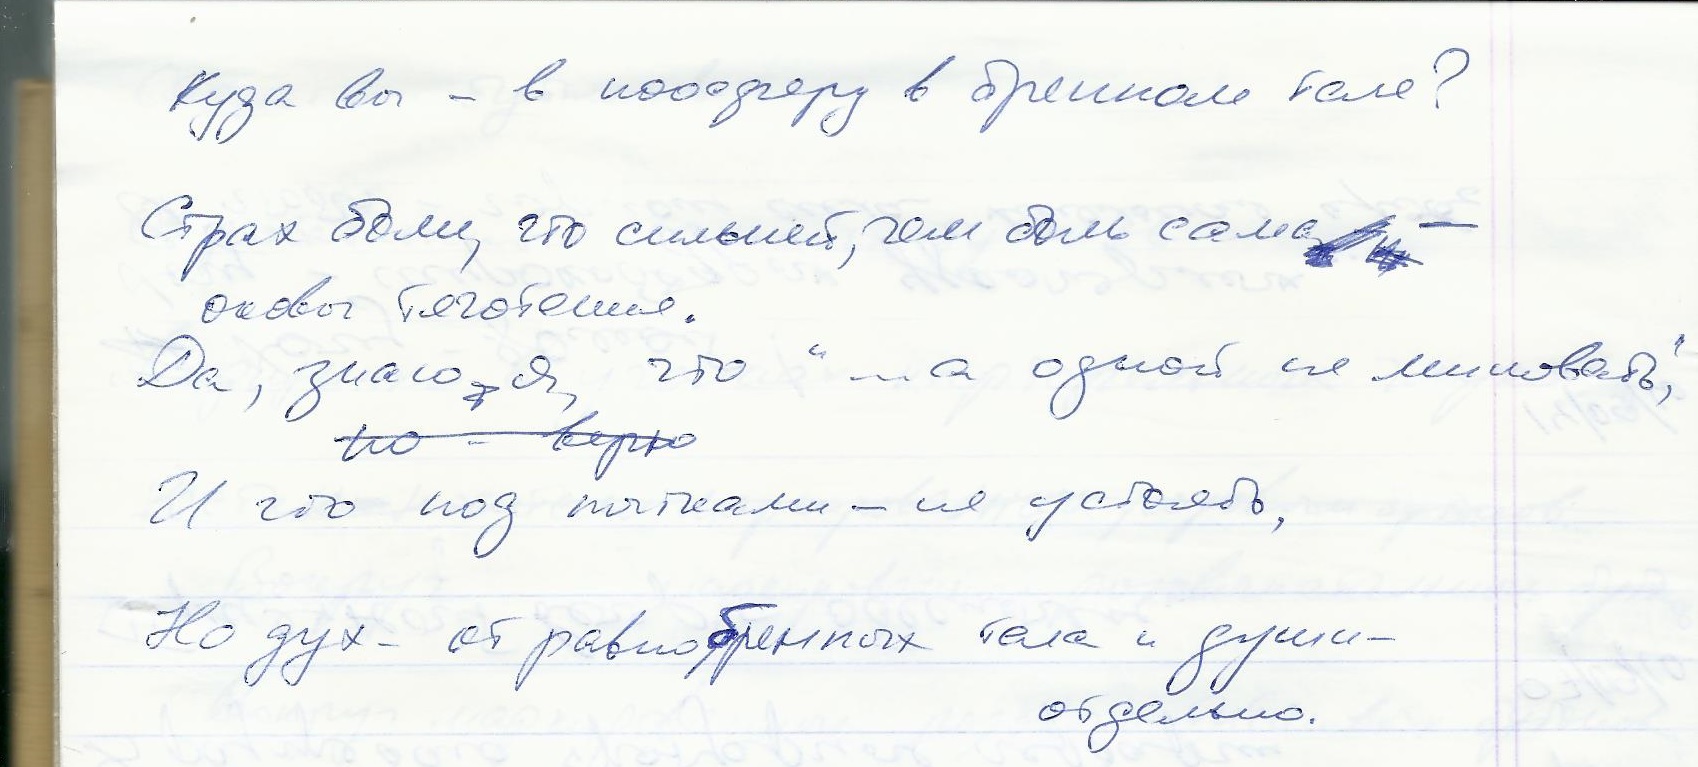 Куда вы – в ноосферу в бренном теле?
Страх боли, что сильней, чем боль сама –
оковы тяготения.
Да, знаю я, что "...а одной не миновать",
но - верю
И что под пытками – не устоять,
Но дух – от равнобренных тела и души –
отдельно.